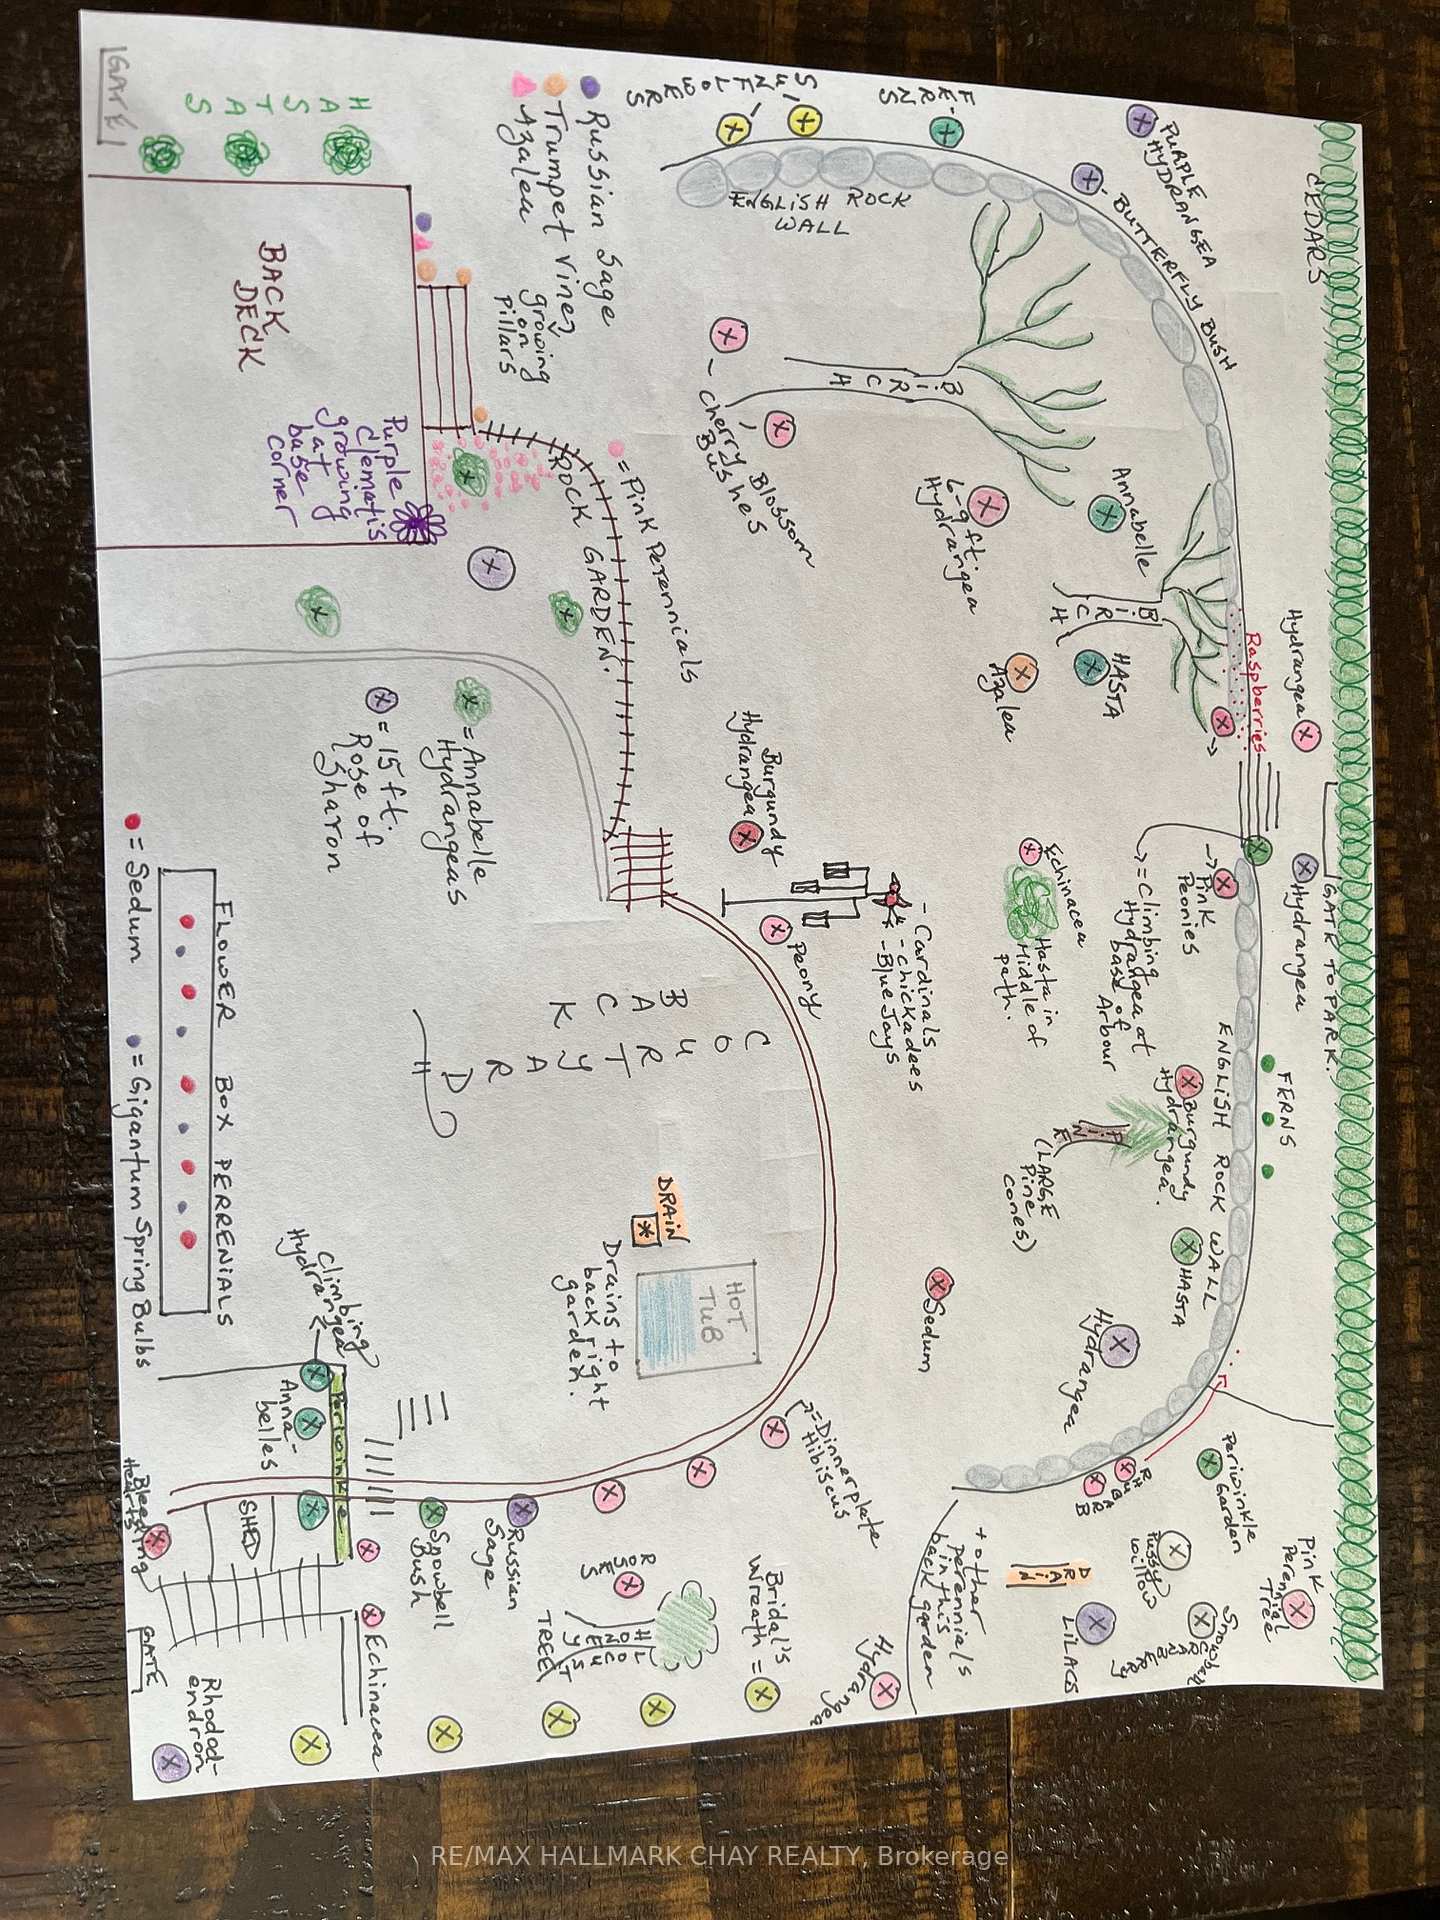 CEDARS
PURPLE
HYDRANGEA
BUTTERFLY BUSH
FERNS
SUNFLOWERS
ENGLISH ROCK
WALL
BIRCH
Cherry Blossom
Bushes
6-9 ft.
Hydrangea
Annabelle
BIRCH
HASTA
Azalea
Raspberries
Hydrangea
GATE TO PARK.
Hydrangea
→ Pink
Peonies
→ = Climbing
Hydrangea at
base of
Arbour
Echinacea
Hasta in
Middle of
path.
FERNS
ENGLISH ROCK WALL
Burgundy
Hydrangea.
PINE
(LARGE
Pine
Cones)
HASTA
Hydrangea
Sedum
Periwinkle
Garden
Pink
Perennial
Tree
RHUBARB
Pussy
Willow
DRAIN
LILACS
+ other
perennials
back in this
back garden
Hydrangea
Burgundy
Hydrangea
- Cardinals
- Chickadees
- Blue Jays
Peony
Russian Sage
Trumpet Vines
growing
on
Pillars
Azalea
= Pink Perennials
ROCK GARDEN.
GATE
HASTAS
BACK
DECK
Purple
Clematis
growing
at
base
corner
= Annabelle
Hydrangeas
= 15 ft.
Rose of
Sharon
BACK
COURTYARD
DRAIN
Drains to
back right
garden.
HOT
TUB
= Dinnerplate
Hibiscus
Bridal's
Wreath =
ROSES
HONEY LOCUST
TREE
Russian
Sage
Snowbell
Bush
FLOWER BOX PERRENIALS
= Sedum
= Gigantum Spring Bulbs
Climbing
Hydrangea
Anna-
belles
Periwinkle
SHED
Bleeding
Hearts
Echinacea
GATE
Rhodod-
endron
RE/MAX HALLMARK CHAY REALTY, Brokerage